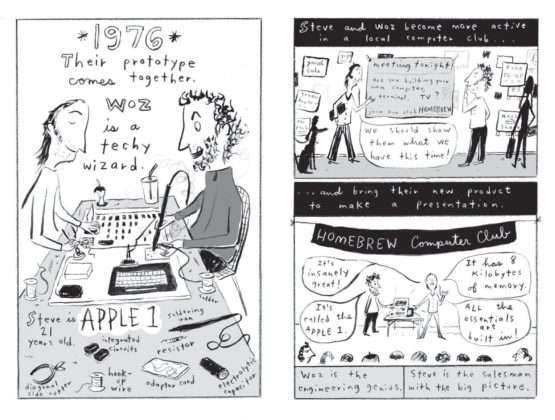 *1976*
Their prototype
comes together.
WOZ
is a
techy
wizard.
solder
Steve is
21
years old.
APPLE 1
soldering
iron
integrated
circuits
resistor
diagonal
side cutter
hook-
up
wire
adaptor cord
electrolytic
capacitor
Steve and Woz become more active
in a local computer club...
yard
sale
meeting tonight!
Are you building your
own computer,
terminal, TV?
join our club HOMEBREW
We should show
them what we
have this time!
...and bring their new product
to make a presentation.
HOMEBREW Computer Club
It's
insanely
great!
It has 8
Kilobytes
of memory.
It's
called the
APPLE 1.
ALL the
essentials
are
built in!
Woz is the
engineering genius.
Steve is the salesman
with the big picture.